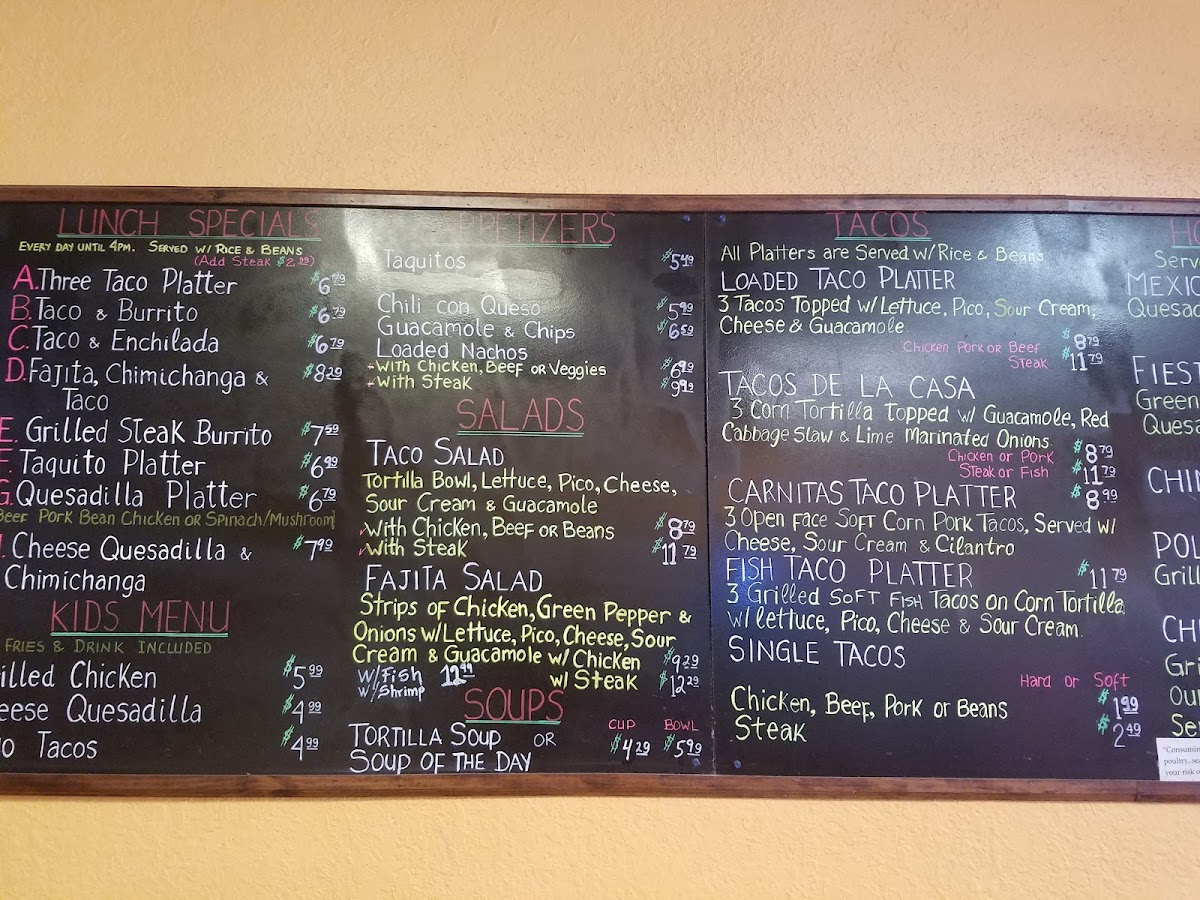 LUNCH SPECIALS
EVERY DAY UNTIL 4PM. SERVED W/ RICE & BEANS
(Add Steak $2.99)
A. Three Taco Platter $6.79
B. Taco & Burrito $6.79
C. Taco & Enchilada $6.79
D. Fajita, Chimichanga & $8.29
Taco
E. Grilled Steak Burrito $7.59
F. Taquito Platter $6.99
G. Quesadilla Platter $6.79
Beef Pork Bean Chicken or Spinach/Mushroom)
. Cheese Quesadilla & $7.99
Chimichanga
KIDS MENU
FRIES & DRINK INCLUDED
illed Chicken $5.99
eese Quesadilla $4.99
o Tacos $4.99
PPETIZERS
Taquitos $5.49
Chili con Queso $5.99
Guacamole & Chips $6.59
Loaded Nachos
-With Chicken, Beef or Veggies $6.99
-With Steak $9.99
SALADS
TACO SALAD
Tortilla Bowl, Lettuce, Pico, Cheese,
Sour Cream & Guacamole
With Chicken, Beef or Beans $8.79
With Steak $11.79
FAJITA SALAD
Strips of Chicken, Green Pepper &
Onions w/Lettuce, Pico, Cheese, Sour
Cream & Guacamole w/ Chicken $9.29
w/Fish 12.99 w/ Steak $12.29
w/ Shrimp
SOUPS
CUP BOWL
TORTILLA SOUP OR $4.29 $5.99
SOUP OF THE DAY
TACOS
All Platters are Served w/Rice & Beans
LOADED TACO PLATTER
3 Tacos Topped w/ Lettuce, Pico, Sour Cream,
Cheese & Guacamole
Chicken Pork or Beef $8.79
Steak $11.79
TACOS DE LA CASA
3 Corn Tortilla Topped w/ Guacamole, Red
Cabbage Slaw & Lime Marinated Onions
Chicken or Pork $8.79
Steak or Fish $11.79
CARNITAS TACO PLATTER $8.99
3 Open Face Soft Corn Pork Tacos, Served w/
Cheese, Sour Cream & Cilantro
FISH TACO PLATTER $11.79
3 Grilled SOFT FISH Tacos on Corn Tortilla
w/lettuce, Pico, Cheese & Sour Cream.
SINGLE TACOS
Hard or Soft
Chicken, Beef, Pork or Beans $1.99
Steak $2.49
HO
Serv
MEXIC
Quesad
FIEST
Green
Quesa
CHI
POL
Grill
CH
Gri
Ou
Se
"Consumin
poultry, sea
your risk o